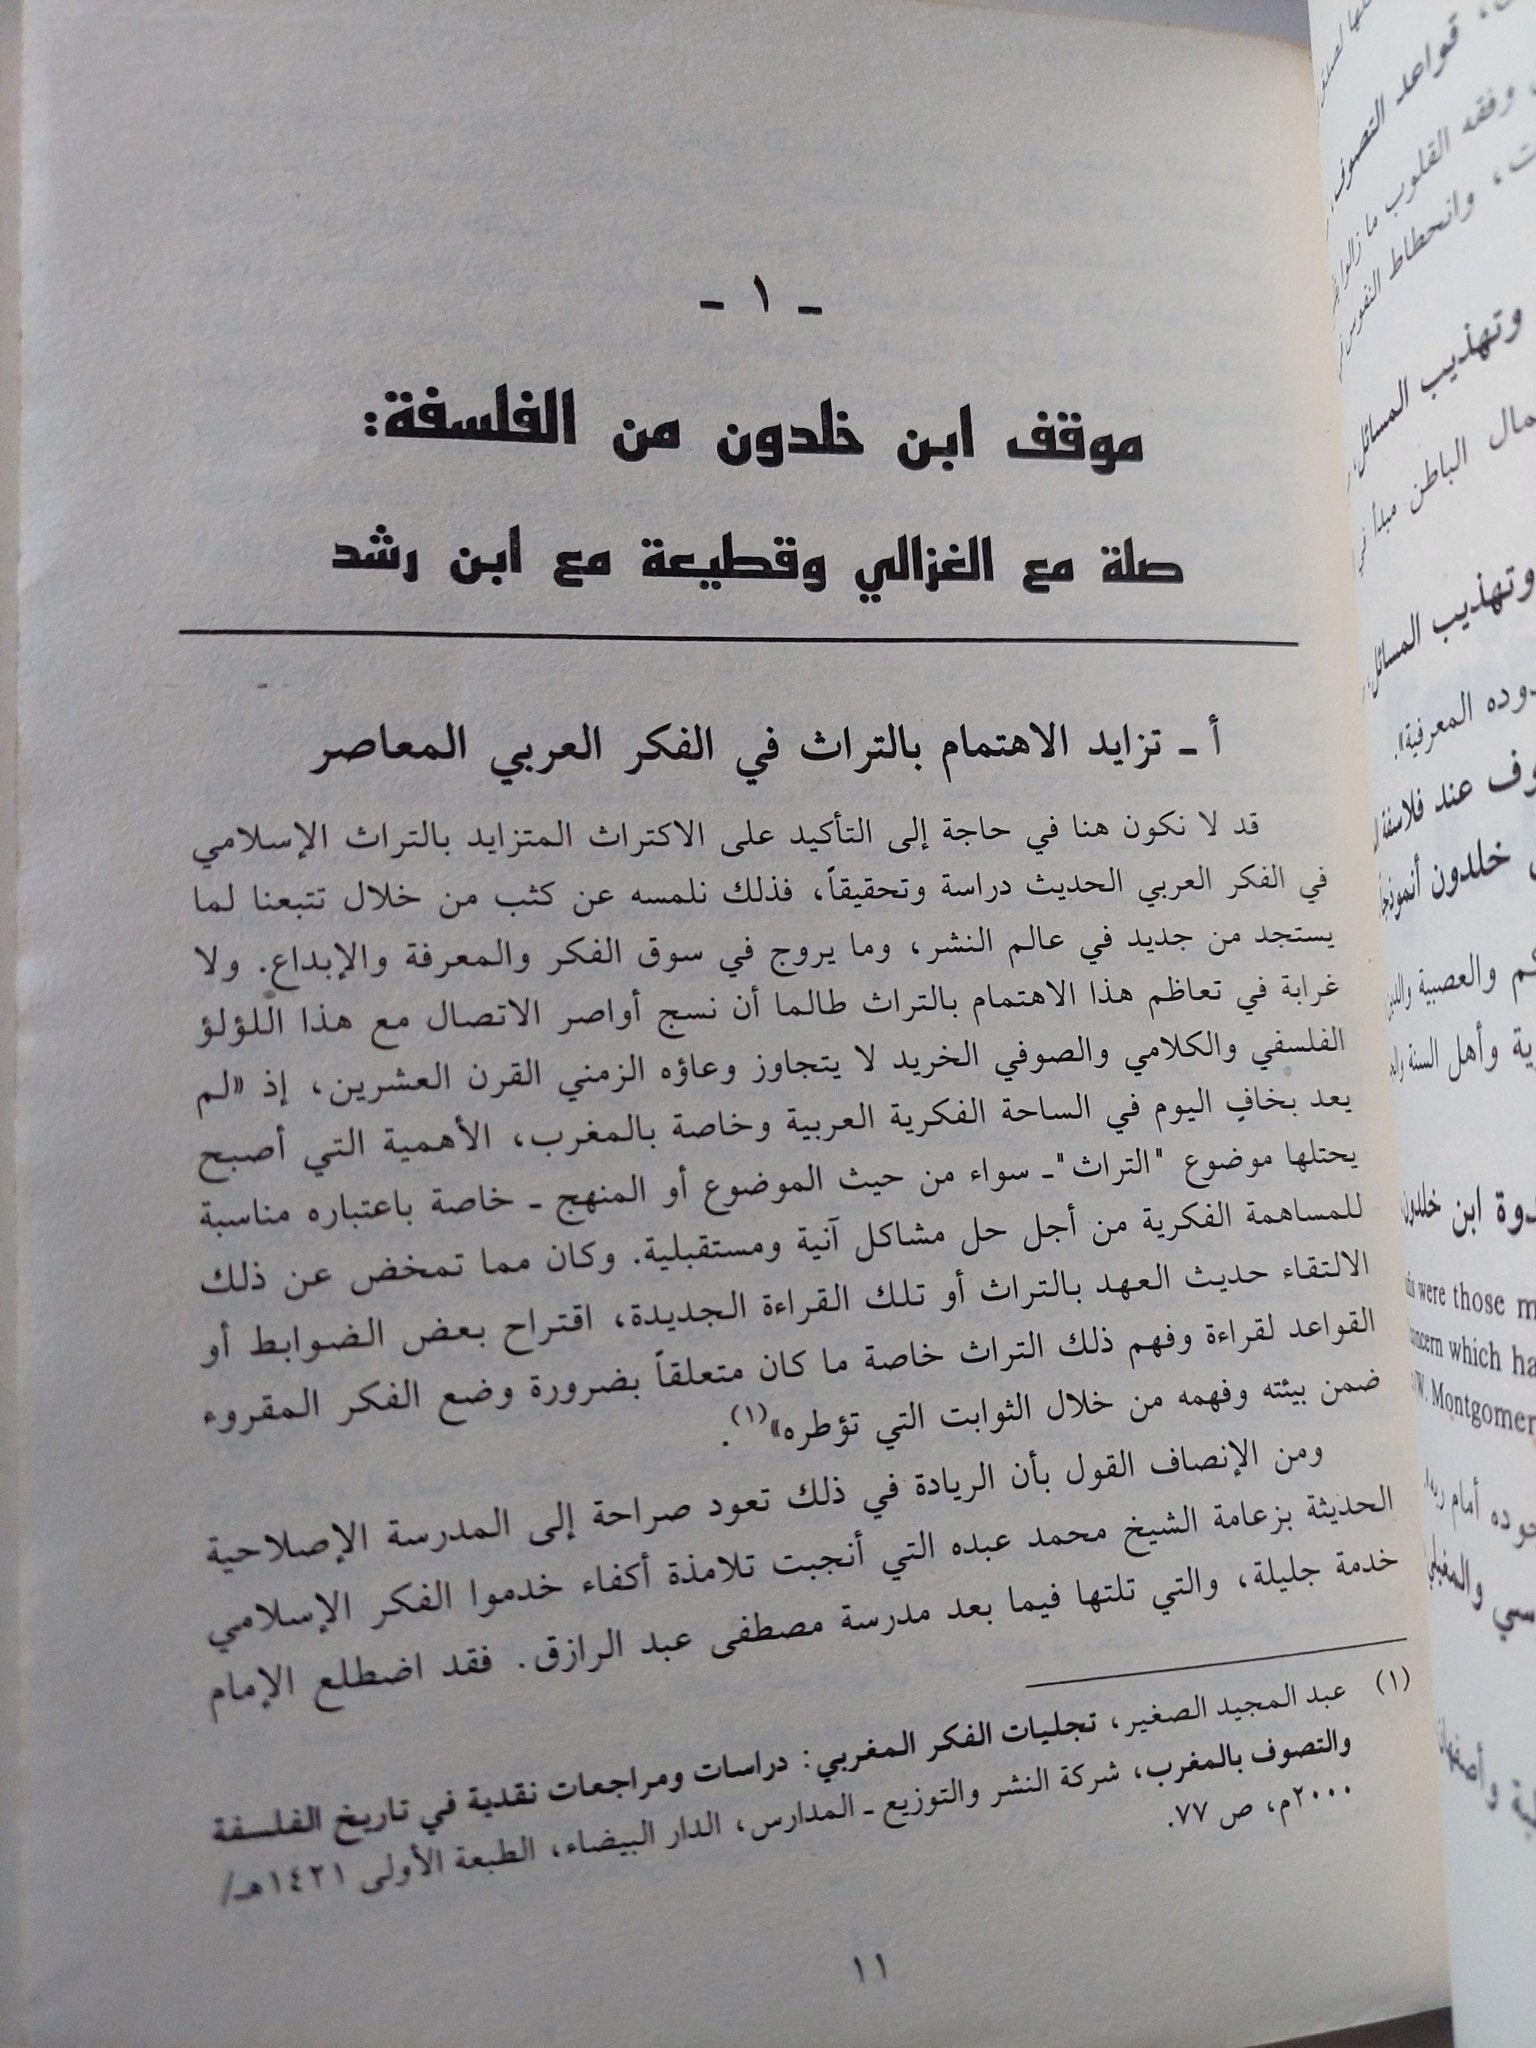 - ١ -
موقف ابن خلدون من الفلسفة:
صلة مع الغزالي وقطيعة مع ابن رشد
أ ـ تزايد الاهتمام بالتراث في الفكر العربي المعاصر
قد لا نكون هنا في حاجة إلى التأكيد على الاكتراث المتزايد بالتراث الإسلامي
في الفكر العربي الحديث دراسة وتحقيقاً، فذلك نلمسه عن كثب من خلال تتبعنا لما
يستجد من جديد في عالم النشر، وما يروج في سوق الفكر والمعرفة والإبداع. ولا
غرابة في تعاظم هذا الاهتمام بالتراث طالما أن نسج أواصر الاتصال مع هذا اللؤلؤ
الفلسفي والكلامي والصوفي الخريد لا يتجاوز وعاؤه الزمني القرن العشرين، إذ «لم
يعد بخافٍ اليوم في الساحة الفكرية العربية وخاصة بالمغرب، الأهمية التي أصبح
يحتلها موضوع "التراث"ـ سواء من حيث الموضوع أو المنهج ـ خاصة باعتباره مناسبة
للمساهمة الفكرية من أجل حل مشاكل آنية ومستقبلية. وكان مما تمخض عن ذلك
الالتقاء حديث العهد بالتراث أو تلك القراءة الجديدة، اقتراح بعض الضوابط أو
القواعد لقراءة وفهم ذلك التراث خاصة ما كان متعلقاً بضرورة وضع الفكر المقروء
ضمن بيئته وفهمه من خلال الثوابت التي تؤطره»(١).
ومن الإنصاف القول بأن الريادة في ذلك تعود صراحة إلى المدرسة الإصلاحية
الحديثة بزعامة الشيخ محمد عبده التي أنجبت تلامذة أكفاء خدموا الفكر الإسلامي
خدمة جليلة، والتي تلتها فيما بعد مدرسة مصطفى عبد الرازق. فقد اضطلع الإمام
(١) عبد المجيد الصغير، تجليات الفكر المغربي: دراسات ومراجعات نقدية في تاريخ الفلسفة
والتصوف بالمغرب، شركة النشر والتوزيع ـ المدارس، الدار البيضاء، الطبعة الأولى ١٤٢١هـ/
٢٠٠٠م، ص ٧٧.
١١
قواعد التصوف
وفقه القلوب ما زالوا
وانحطاط النفوس
وتهذيب المسائل
الباطن مبدأ
وتهذيب المسائل
المعرفية
عند فلاسفة
خلدون أنموذجا
والعصبية
وأهل السنة
ابن خلدون
were those
which
W.
أمام